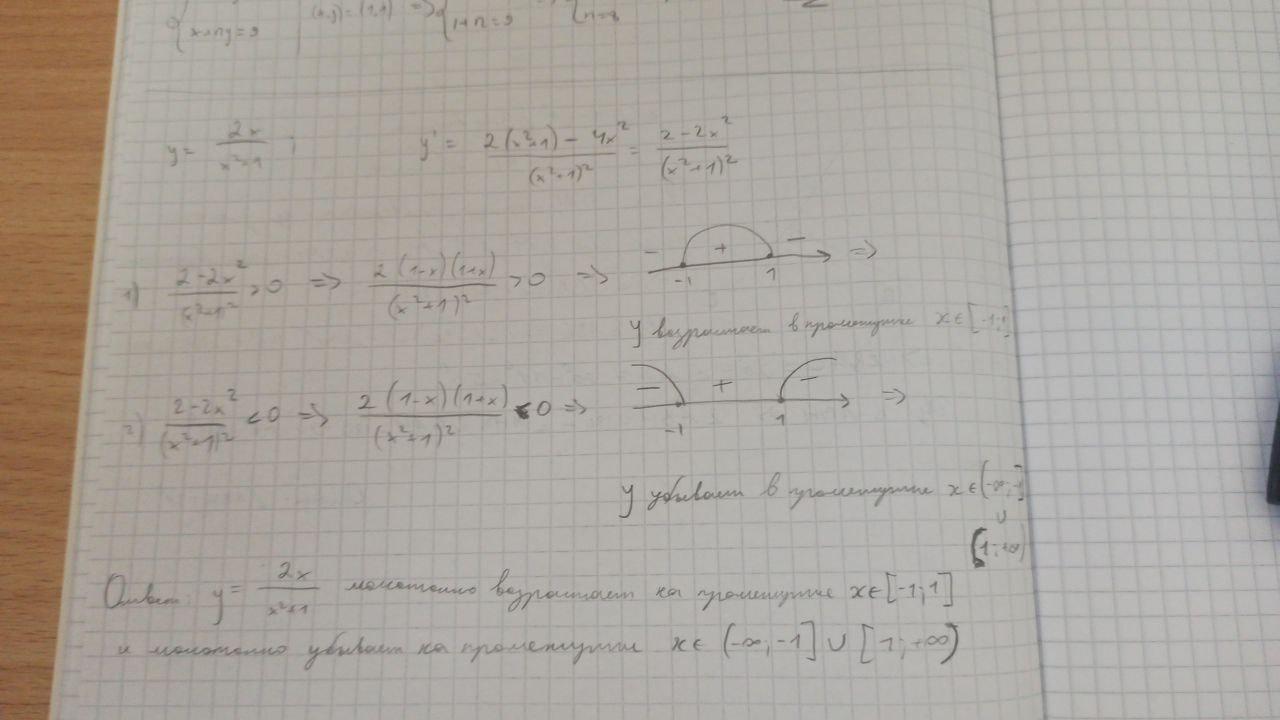 x+ny=9 (x,y)=(1,1) => 1+n=9 n=8
y = 2x/(x²+1) ; y' = (2(x²+1) - 4x²)/(x²+1)² = (2-2x²)/(x²+1)²
1) (2-2x²)/(x²+1)² > 0 => 2(1-x)(1+x)/(x²+1)² > 0 => - + - =>
-1 1
y возрастает в промежутке x∈[-1;1]
2) (2-2x²)/(x²+1)² < 0 => 2(1-x)(1+x)/(x²+1)² < 0 => - + - =>
-1 1
y убывает в промежутке x∈(-∞;-1]
∪
[1;+∞)
Ответ: y = 2x/(x²+1) монотонно возрастает на промежутке x∈[-1;1]
и монотонно убывает на промежутке x∈(-∞;-1]∪[1;+∞)